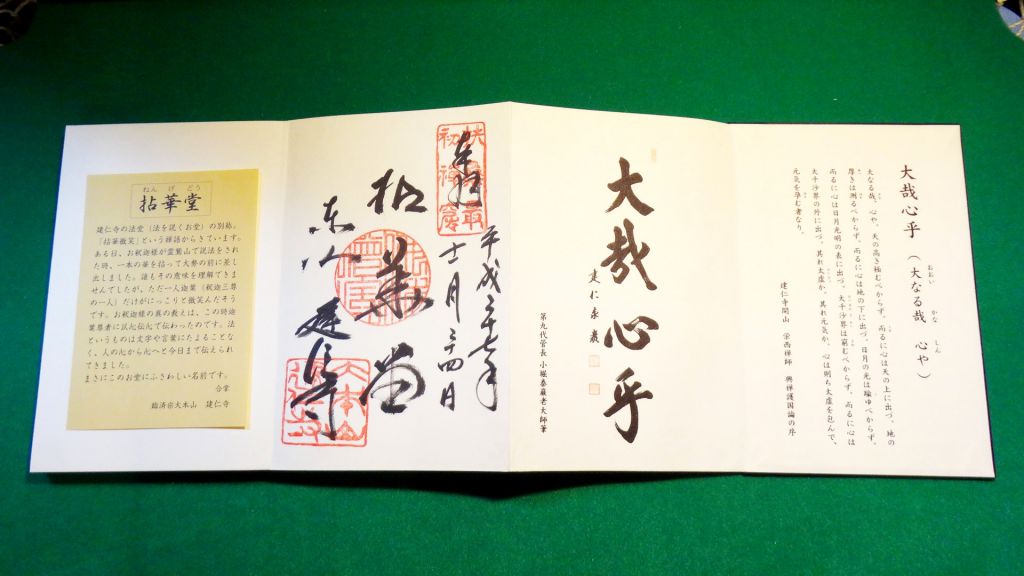 大哉心乎
(大なる哉 心や)
おおい かな しん
大なる哉、心や。天の高き極むべからず、而るに心は天の上に出づ。地の
厚きは測るべからず、而るに心は地の下に出づ。日月の光は踰ゆべからず、
而るに心は日月光明の表に出づ。大千沙界は窮むべからず、而るに心は
大千沙界の外に出づ。其れ太虚か、其れ元気か、心は則ち太虚を包んで、
元気を孕む者なり。
建仁寺開山 栄西禅師 興禅護国論の序
大哉心乎
建仁泰巖
第九代管長 小堀泰巖老大師筆
平成二十七年
奉拝
拈華堂
東山 建仁寺
ねんげどう
拈華堂
建仁寺の法堂(法を説くお堂)の別称。
「拈華微笑」という禅語からきています。
ある日、お釈迦様が霊鷲山で説法をされ
た時、一本の華を拈って大勢の前に差し
出しました。誰もその意味を理解できま
せんでしたが、ただ一人迦葉(釈迦三尊
の一人)だけがにっこりと微笑んだそう
です。お釈迦様の真の教えは、この時迦
葉尊者に以心伝心で伝わったのです。法
というものは文字や言葉にたよることな
く、人の心から心へと今日まで伝えられ
てきました。
まさにこのお堂にふさわしい名前です。
合掌
臨済宗大本山 建仁寺